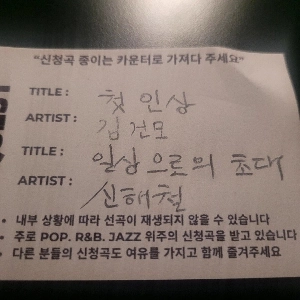 "신청곡 종이는 카운터로 가져다 주세요"
TITLE : 첫 인상
ARTIST : 김건모
TITLE : 일상으로의 초대
ARTIST : 신해철
• 내부 상황에 따라 선곡이 재생되지 않을 수 있습니다
• 주로 POP. R&B. JAZZ 위주의 신청곡을 받고 있습니다
• 다른 분들의 신청곡도 여유를 가지고 함께 즐겨주세요